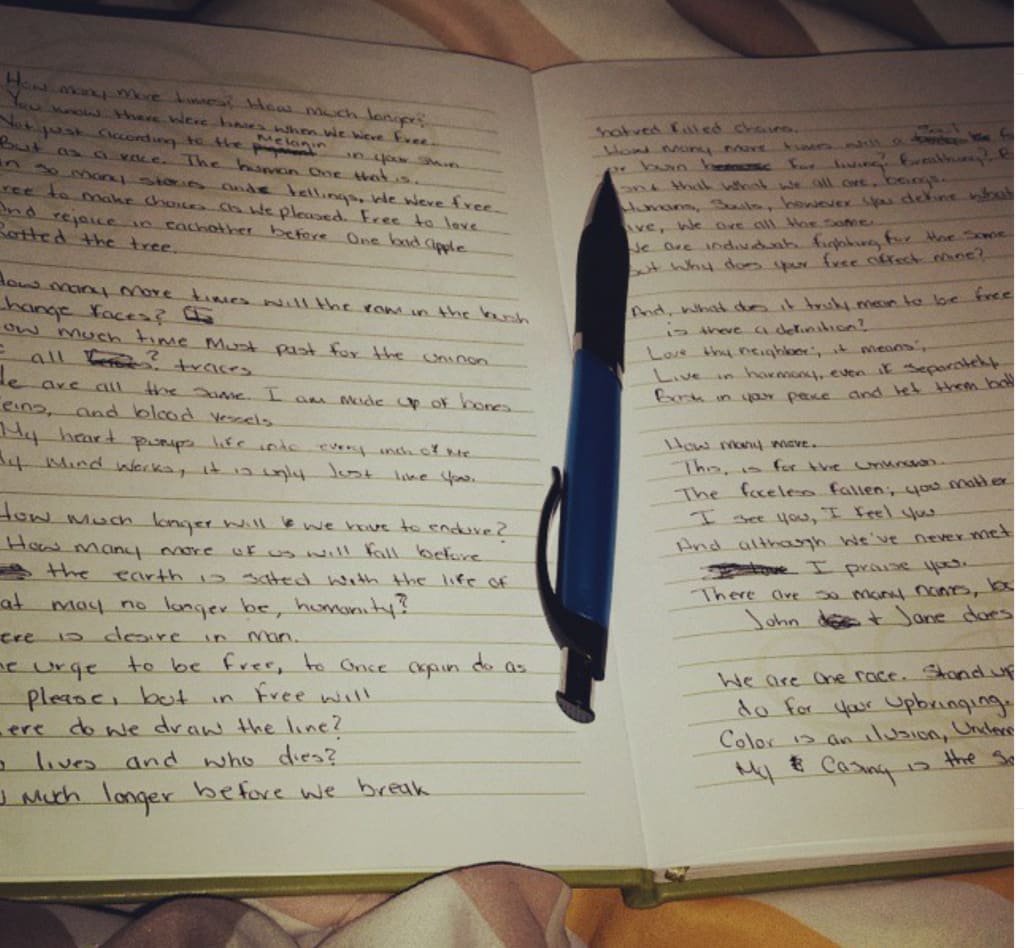 How many more times? How much longer?
You know there were times when we were free.
Not just according to the melanin in your skin
But as a race. The human one that is.
In so many stories and tellings, we were free
free to make choices as we pleased. Free to love
And rejoice in eachother before one bad apple
Rotted the tree.
How many more times will the ram in the bush
change faces?
ow much time must past for the uninon
f all traces
We are all the same. I am made up of bones
eins, and blood vessels
My heart pumps life into every inch of me
My mind works, it is ugly Just like you.
How much longer will we have to endure?
How many more of us will fall before
the earth is sated with the life of
at may no longer be, humanity?
ere is desire in man.
he urge to be free, to once again do as
please, but in free will
ere do we draw the line?
o lives and who dies?
w much longer before we break
hatred filled chains.
How many more times will a soul
or burn for living? Breathing? B
ont that what we all are, beings.
Humans, Souls, however you define what
ive, we are all the same.
We are individuals fighting for the same
but why does your free affect mine?
And, what does it truly mean to be free
is there a definition?
Love thy neighbor; it means;
Live in harmony, even if separately
Bask in your peace and let them
How many more.
This, is for the unknown.
The faceless fallen; you matter
I see you, I feel you
And although we've never met
I praise you.
There are so many names,
John + Jane does
We are one race. Stand up
do for your upbringing.
Color is an ilusion, Unders
My Casing is the Sa